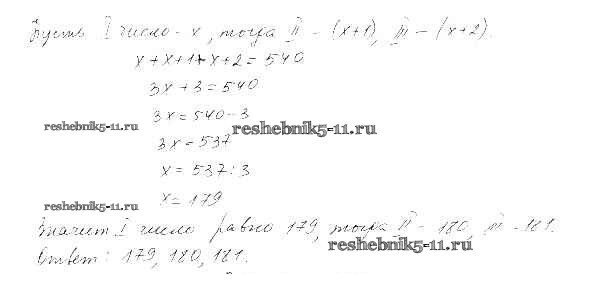 Пусть I число - x, тогда II - (x+1), III - (x+2).
x+x+1+x+2=540
3x+3=540
3x=540-3
reshebnik5-11.ru
reshebnik5-11.ru
3x=537
x=537:3
x=179
reshebnik5-11.ru
Значит I число равно 179, тогда II - 180, III - 181.
reshebnik5-11.ru
Ответ: 179, 180, 181.